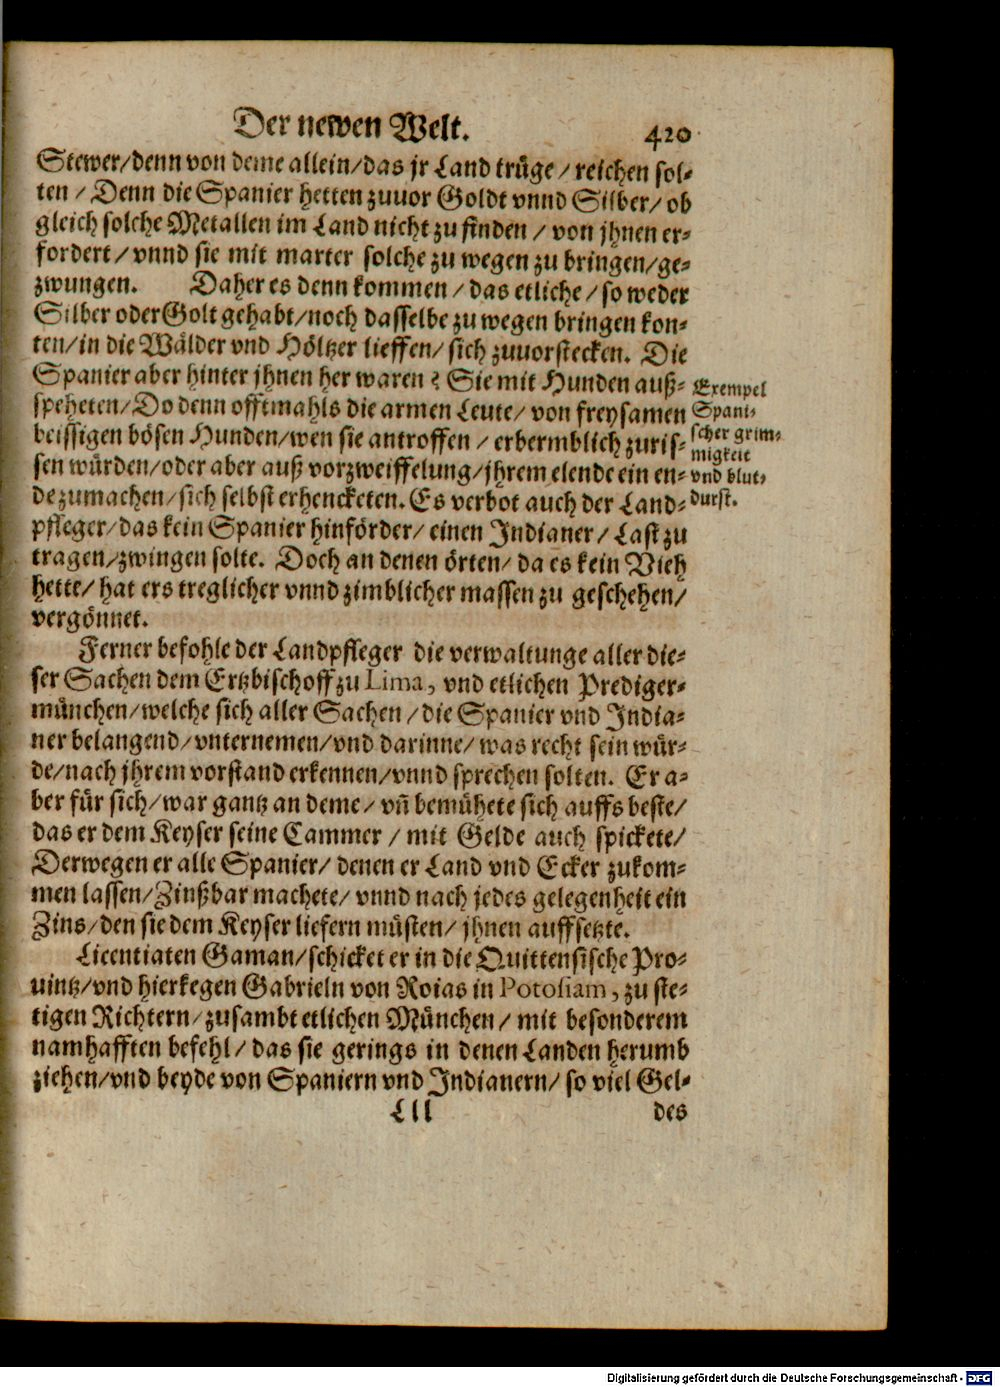 Der newen Welt. 420
Stewer/denn von deme allein/das jr Land trüge/reichen sol-
ten/Denn die Spanier hetten zuuor Goldt vnnd Silber/ob
gleich solche Metallen im Land nicht zu finden/von jhnen er-
fordert/vnnd sie mit marter solche zu wegen zu bringen/ge-
zwungen. Daher es denn kommen/das etliche/so weder
Silber oder Golt gehabt/noch dasselbe zu wegen bringen kon-
ten/in die Wälder vnd Höltzer lieffen/sich zuuorstecken. Die
Spanier aber hinter jhnen her waren? Sie mit Hunden auß-
speheten/Do denn offtmahls die armen Leute/von freysamen
beissigen bösen Hunden/wen sie antroffen/erbermblich zuris-
sen würden/oder aber auß vorzweiffelung/jhrem elende ein en-
de zumachen/sich selbst erhencketen. Es verbot auch der Land-
pfleger/das kein Spanier hinförder/einen Indianer/Last zu
tragen/zwingen solte. Doch an denen örten/da es kein Vieh
hette/hat ers treglicher vnnd zimblicher massen zu geschehen/
vergönnet.
Exempel
Spani-
scher grim-
migkeit
vnd blut-
durst.
Ferner befohle der Landpfleger die verwaltunge aller die-
ser Sachen dem Ertzbischoff zu Lima, vnd etlichen Prediger-
münchen/welche sich aller Sachen/die Spanier vnd India-
ner belangend/vnternemen/vnd darinne/was recht sein wür-
de/nach jhrem vorstand erkennen/vnnd sprechen solten. Er a-
ber für sich/war gantz an deme/vñ bemühete sich auffs beste/
das er dem Keyser seine Cammer/mit Gelde auch spickete/
Derwegen er alle Spanier/denen er Land vnd Ecker zukom-
men lassen/Zinßbar machete/vnnd nach jedes gelegenheit ein
Zins/den sie dem Keyser liefern müsten/jhnen auffsetzte.
Licentiaten Gaman/schicket er in die Quittensische Pro-
uintz/vnd hierkegen Gabrieln von Roias in Potosiam, zu ste-
tigen Richtern/zusambt etlichen München/mit besonderem
namhafften befehl/das sie gerings in denen Landen herumb
ziehen/vnd beyde von Spaniern vnd Indianern/so viel Gel-
Lll des
Digitalisierung gefördert durch die Deutsche Forschungsgemeinschaft - DFG